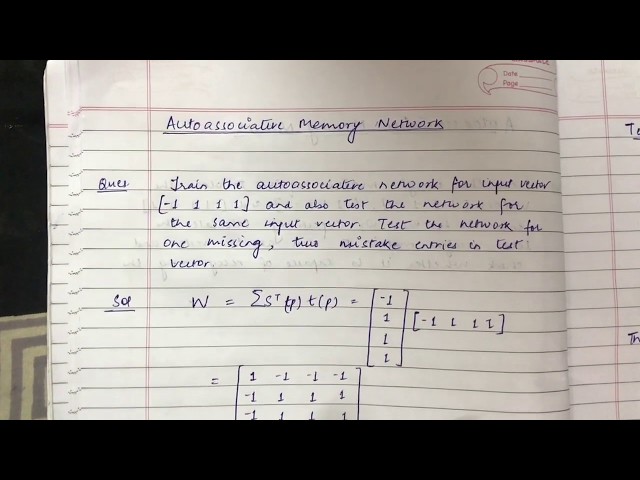 Date
Page
Autoassociative Memory Network
Ques Train the autoassociative network for input vector
[-1 1 1 1] and also test the network for
the same input vector. Test the network for
one missing, two mistake entries in test
vector.
Sol W = ΣS^T(p) t(p) = [-1 1 1 1] [-1 1 1 1]
= [1 -1 -1 -1
-1 1 1 1
-1 1 1 1
Te
Th